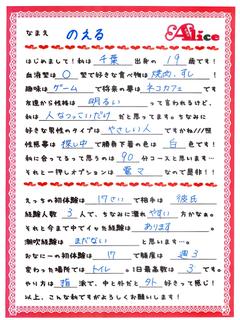 なまえ のえる Alice
はじめまして!私は 千葉 出身の 19 歳です!
血液型は O 型で好きな食べ物は 焼肉、すし !
趣味は ゲーム で将来の夢は ネコカフェ です
友達から性格は 明るい って言われるけど、
私は 人なつっこい だけ だと思ってます。ちなみに
好きな男性のタイプは やさしい人 ですかね///照
性感帯は 探し中 で勝負下着の色は 白 色です!
私に会ってるって思うのは 90 分コースと思います…
それと一押しオプションは 電マ なので是非!!
経験人数 3 人で、ちなみに濡れ やすい 方かなぁ。
それと今まで中でイった経験は あります 。
潮吹経験は まだない と思います…。
変わった場所では トイレ 。1日最高数は 3 です。
やり方は 指 派で、中と外だと 外 好きって感じ!
以上、こんな私ですがよろしくお願いします!